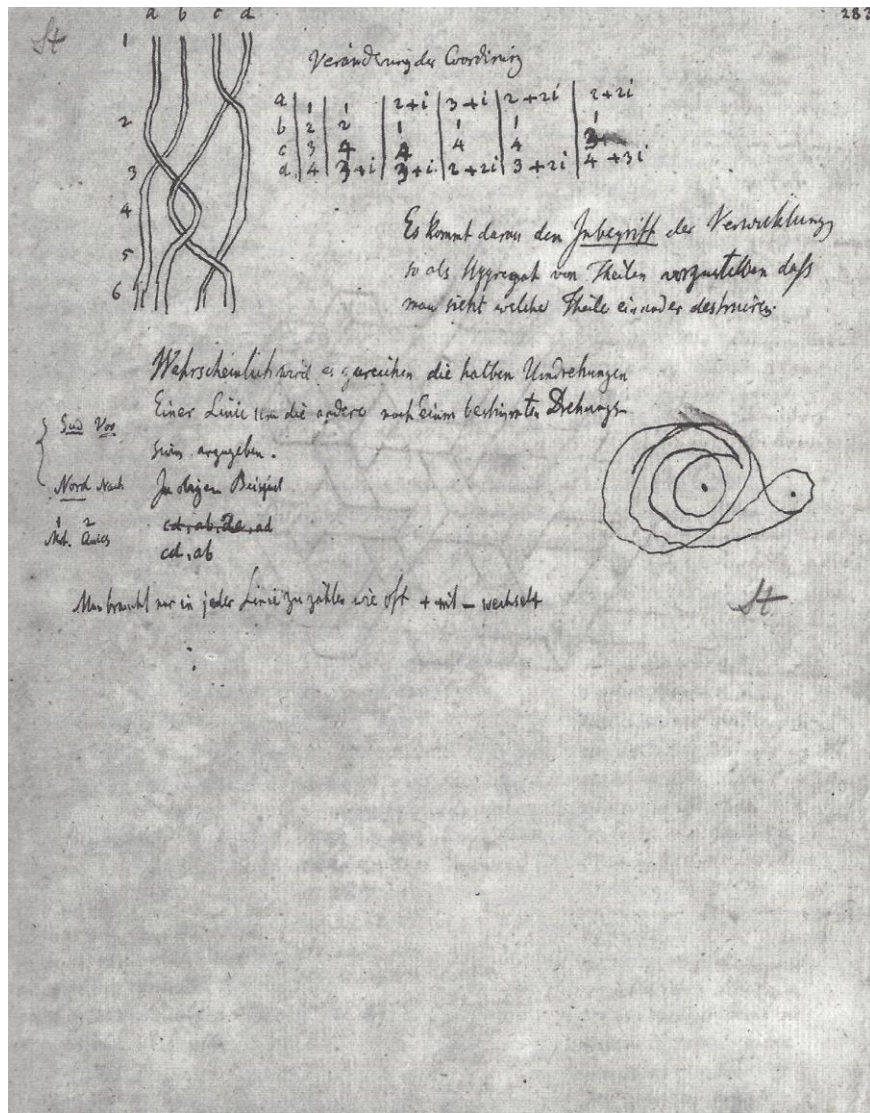 283
St
a b c d
1
2
3
4
5
6
Veränderung der Coordinirung
a | 1 | 1 | 2+i | 3+i | 2+2i | 2+2i
b | 2 | 2 | 1 | 1 | 1 | 1
c | 3 | 4 | 4 | 4 | 4 | 3
d | 4 | 3+i | 3+i | 2+2i | 3+2i | 4+3i
Es kommt darauf an den Inbegriff der Verwicklung
so als Aggregat von Theilen vorzustellen daß
man sieht welche Theile einander destruiren.
Wahrscheinlich wird es zureichen die halben Umdrehungen
Einer Linie um die andere nach Einem bestimmten Drehungs-
sinn anzugeben.
Nord Nach
Im obigen Beispiel
1 2
cd, ab
Man braucht nur in jeder Linie zu zählen wie oft + mit – wechselt
St